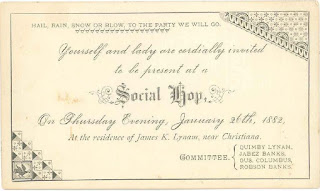 HAIL, RAIN, SNOW OR BLOW, TO THE PARTY WE WILL GO.
Yourself and lady are cordially invited
to be present at a
Social Hop,
On Thursday Evening, January 26th, 1882,
At the residence of James K. Lynam, near Christiana.
COMMITTEE.
QUIMBY LYNAN,
JABEZ BANKS,
GUS. COLUMBUS,
ROBSON DANKS.